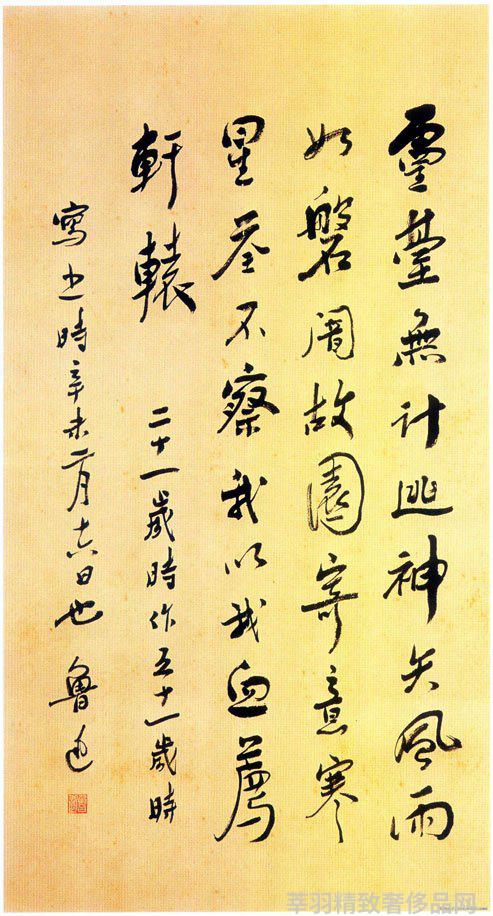 靈臺無計逃神矢風雨
如磐闇故園寄意寒
星荃不察我以我血薦
軒轅 二十一歲時作五十一歲時
寫之時辛未二月十六日也 魯迅
莘羽精致奢侈品网